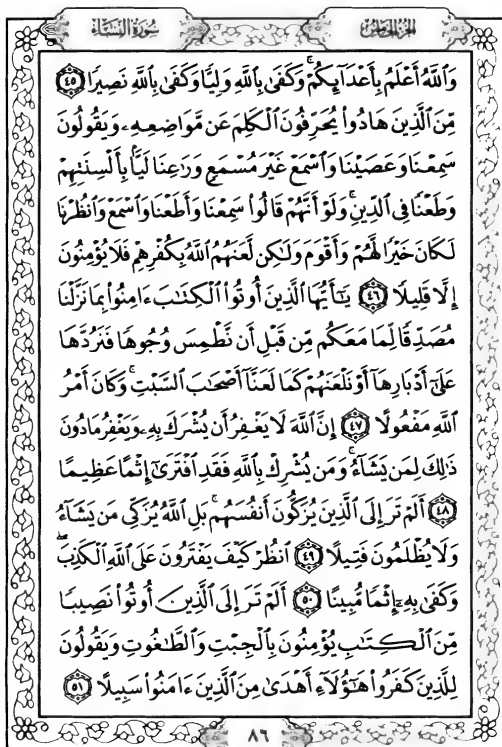 سُورَةُ النِّسَاءِ
الجُزْءُ الخَامِسُ
وَاللَّهُ أَعْلَمُ بِأَعْدَائِكُمْ ۚ وَكَفَىٰ بِاللَّهِ وَلِيًّا وَكَفَىٰ بِاللَّهِ نَصِيرًا ٤٥
مِّنَ الَّذِينَ هَادُوا۟ يُحَرِّفُونَ الْكَلِمَ عَن مَّوَاضِعِهِۦ وَيَقُولُونَ
سَمِعْنَا وَعَصَيْنَا وَاسْمَعْ غَيْرَ مُسْمَعٍ وَرَٰعِنَا لَيًّۢا بِأَلْسِنَتِهِمْ
وَطَعْنًا فِي الدِّينِ ۚ وَلَوْ أَنَّهُمْ قَالُوا۟ سَمِعْنَا وَأَطَعْنَا وَاسْمَعْ وَانظُرْنَا
لَكَانَ خَيْرًا لَّهُمْ وَأَقْوَمَ وَلَٰكِن لَّعَنَهُمُ اللَّهُ بِكُفْرِهِمْ فَلَا يُؤْمِنُونَ
إِلَّا قَلِيلًا ٤٦ يَٰٓأَيُّهَا الَّذِينَ أُوتُوا۟ الْكِتَٰبَ ءَامِنُوا۟ بِمَا نَزَّلْنَا
مُصَدِّقًا لِّمَا مَعَكُم مِّن قَبْلِ أَن نَّطْمِسَ وُجُوهًا فَنَرُدَّهَا
عَلَىٰٓ أَدْبَارِهَآ أَوْ نَلْعَنَهُمْ كَمَا لَعَنَّآ أَصْحَٰبَ السَّبْتِ ۚ وَكَانَ أَمْرُ
اللَّهِ مَفْعُولًا ٤٧ إِنَّ اللَّهَ لَا يَغْفِرُ أَن يُشْرَكَ بِهِۦ وَيَغْفِرُ مَا دُونَ
ذَٰلِكَ لِمَن يَشَآءُ ۚ وَمَن يُشْرِكْ بِاللَّهِ فَقَدِ افْتَرَىٰٓ إِثْمًا عَظِيمًا
٤٨ أَلَمْ تَرَ إِلَى الَّذِينَ يُزَكُّونَ أَنفُسَهُم ۚ بَلِ اللَّهُ يُزَكِّى مَن يَشَآءُ
وَلَا يُظْلَمُونَ فَتِيلًا ٤٩ انظُرْ كَيْفَ يَفْتَرُونَ عَلَى اللَّهِ الْكَذِبَ ۖ
وَكَفَىٰ بِهِۦٓ إِثْمًا مُّبِينًا ٥٠ أَلَمْ تَرَ إِلَى الَّذِينَ أُوتُوا۟ نَصِيبًا
مِّنَ الْكِتَٰبِ يُؤْمِنُونَ بِالْجِبْتِ وَالطَّٰغُوتِ وَيَقُولُونَ
لِلَّذِينَ كَفَرُوا۟ هَٰٓؤُلَآءِ أَهْدَىٰ مِنَ الَّذِينَ ءَامَنُوا۟ سَبِيلًا ٥١
٨٦